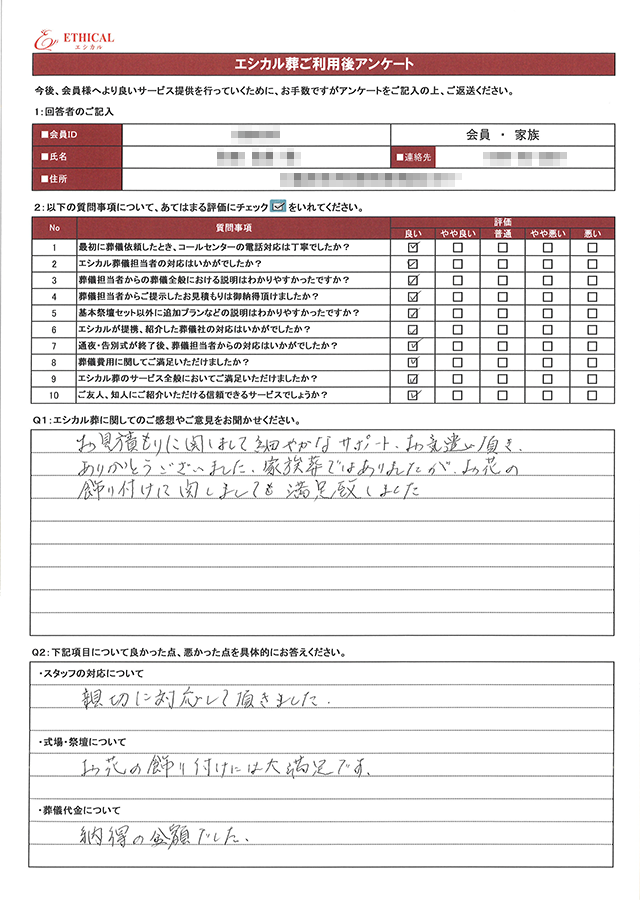 ETHICAL
エシカル
エシカル葬ご利用後アンケート
今後、会員様へより良いサービス提供を行っていくために、お手数ですがアンケートをご記入の上、ご返送ください。
1:回答者のご記入
■会員ID 会員 ・ 家族
■氏名 ■連絡先
■住所
2:以下の質問事項について、あてはまる評価にチェック をいれてください。
No 質問事項 評価
良い やや良い 普通 やや悪い 悪い
1 最初に葬儀依頼したとき、コールセンターの電話対応は丁寧でしたか?
2 エシカル葬儀担当者の対応はいかがでしたか?
3 葬儀担当者からの葬儀全般における説明はわかりやすかったですか?
4 葬儀担当者からご提示したお見積もりは御納得頂けましたか?
5 基本祭壇セット以外に追加プランなどの説明はわかりやすかったですか?
6 エシカルが提携、紹介した葬儀社の対応はいかがでしたか?
7 通夜・告別式が終了後、葬儀担当者からの対応はいかがでしたか?
8 葬儀費用に関してご満足いただけましたか?
9 エシカル葬のサービス全般においてご満足いただけましたか?
10 ご友人、知人にご紹介いただける信頼できるサービスでしょうか?
Q1:エシカル葬に関してのご感想やご意見をお聞かせください。
お見積もりに関しまして細やかなサポート、お気遣い頂き、
ありがとうございました、家族葬ではありましたが、お花の
飾り付けに関しましても満足致しました
Q2:下記項目について良かった点、悪かった点を具体的にお答えください。
・スタッフの対応について
親切に対応して頂きました.
・式場・祭壇について
お花の飾り付けには大満足です、
・葬儀代金について
納得の金額でした、